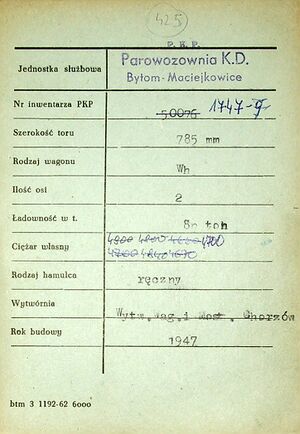 425
P. K. P.
Parowozownia K.D.
Jednostka służbowa
Bytom-Maciejkowice
Nr inwentarza PKP 50076 1747-9
Szerokość toru 785 mm
Rodzaj wagonu Wh
Ilość osi 2
Ładowność w t. 8n ton
Ciężar własny 4700
Rodzaj hamulca ręczny
Wytwórnia Wytw. Wag. i Most. Chorzów
Rok budowy 1947
btm 3 1192-62 6000